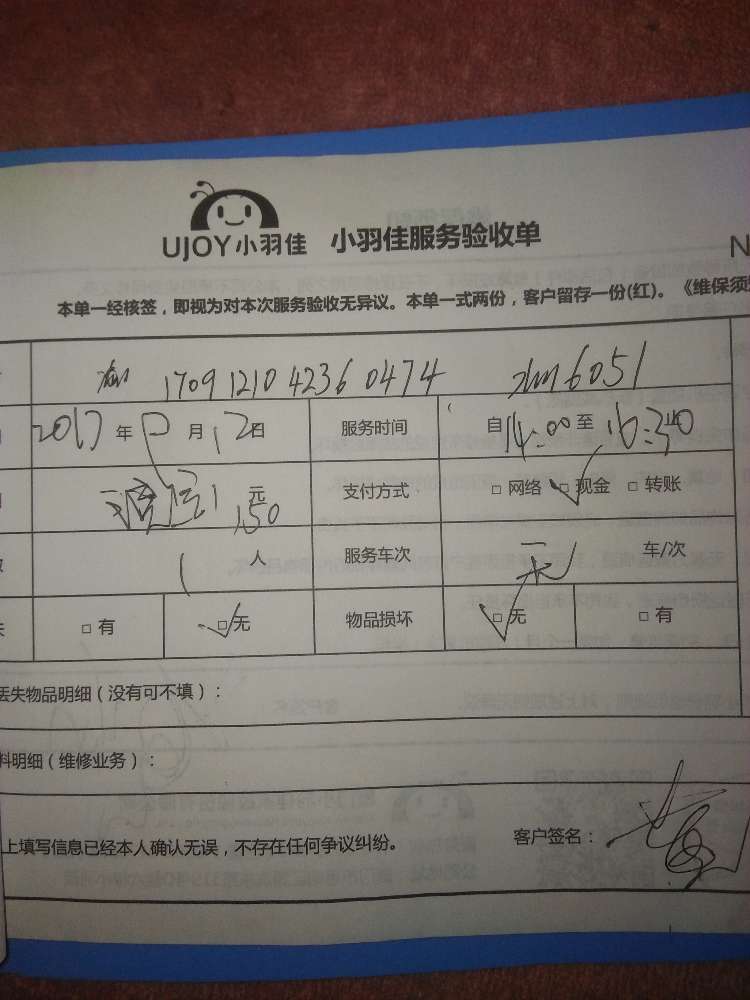 UJOY小羽佳 小羽佳服务验收单 N
本单一经核签，即视为对本次服务验收无异议。本单一式两份，客户留存一份(红)。《维保须知
1709 1210 4236 0474 6051
2017年 月12日 服务时间 自14:00至16:30
元 150 支付方式 □网络 □现金 □转账
1人 服务车次 车/次
□有 □无 物品损坏 □无 □有
丢失物品明细（没有可不填）：
料明细（维修业务）：
上填写信息已经本人确认无误，不存在任何争议纠纷。 客户签名：